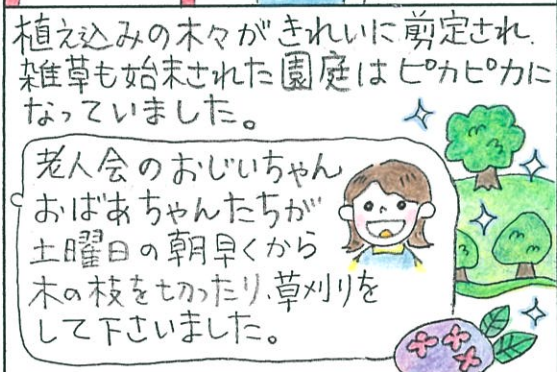 植え込みの木々がきれいに剪定され、
雑草も始末された園庭はピカピカに
なっていました。
老人会のおじいちゃん
おばあちゃんたちが
土曜日の朝早くから
木の枝を切ったり、草刈りを
して下さいました。